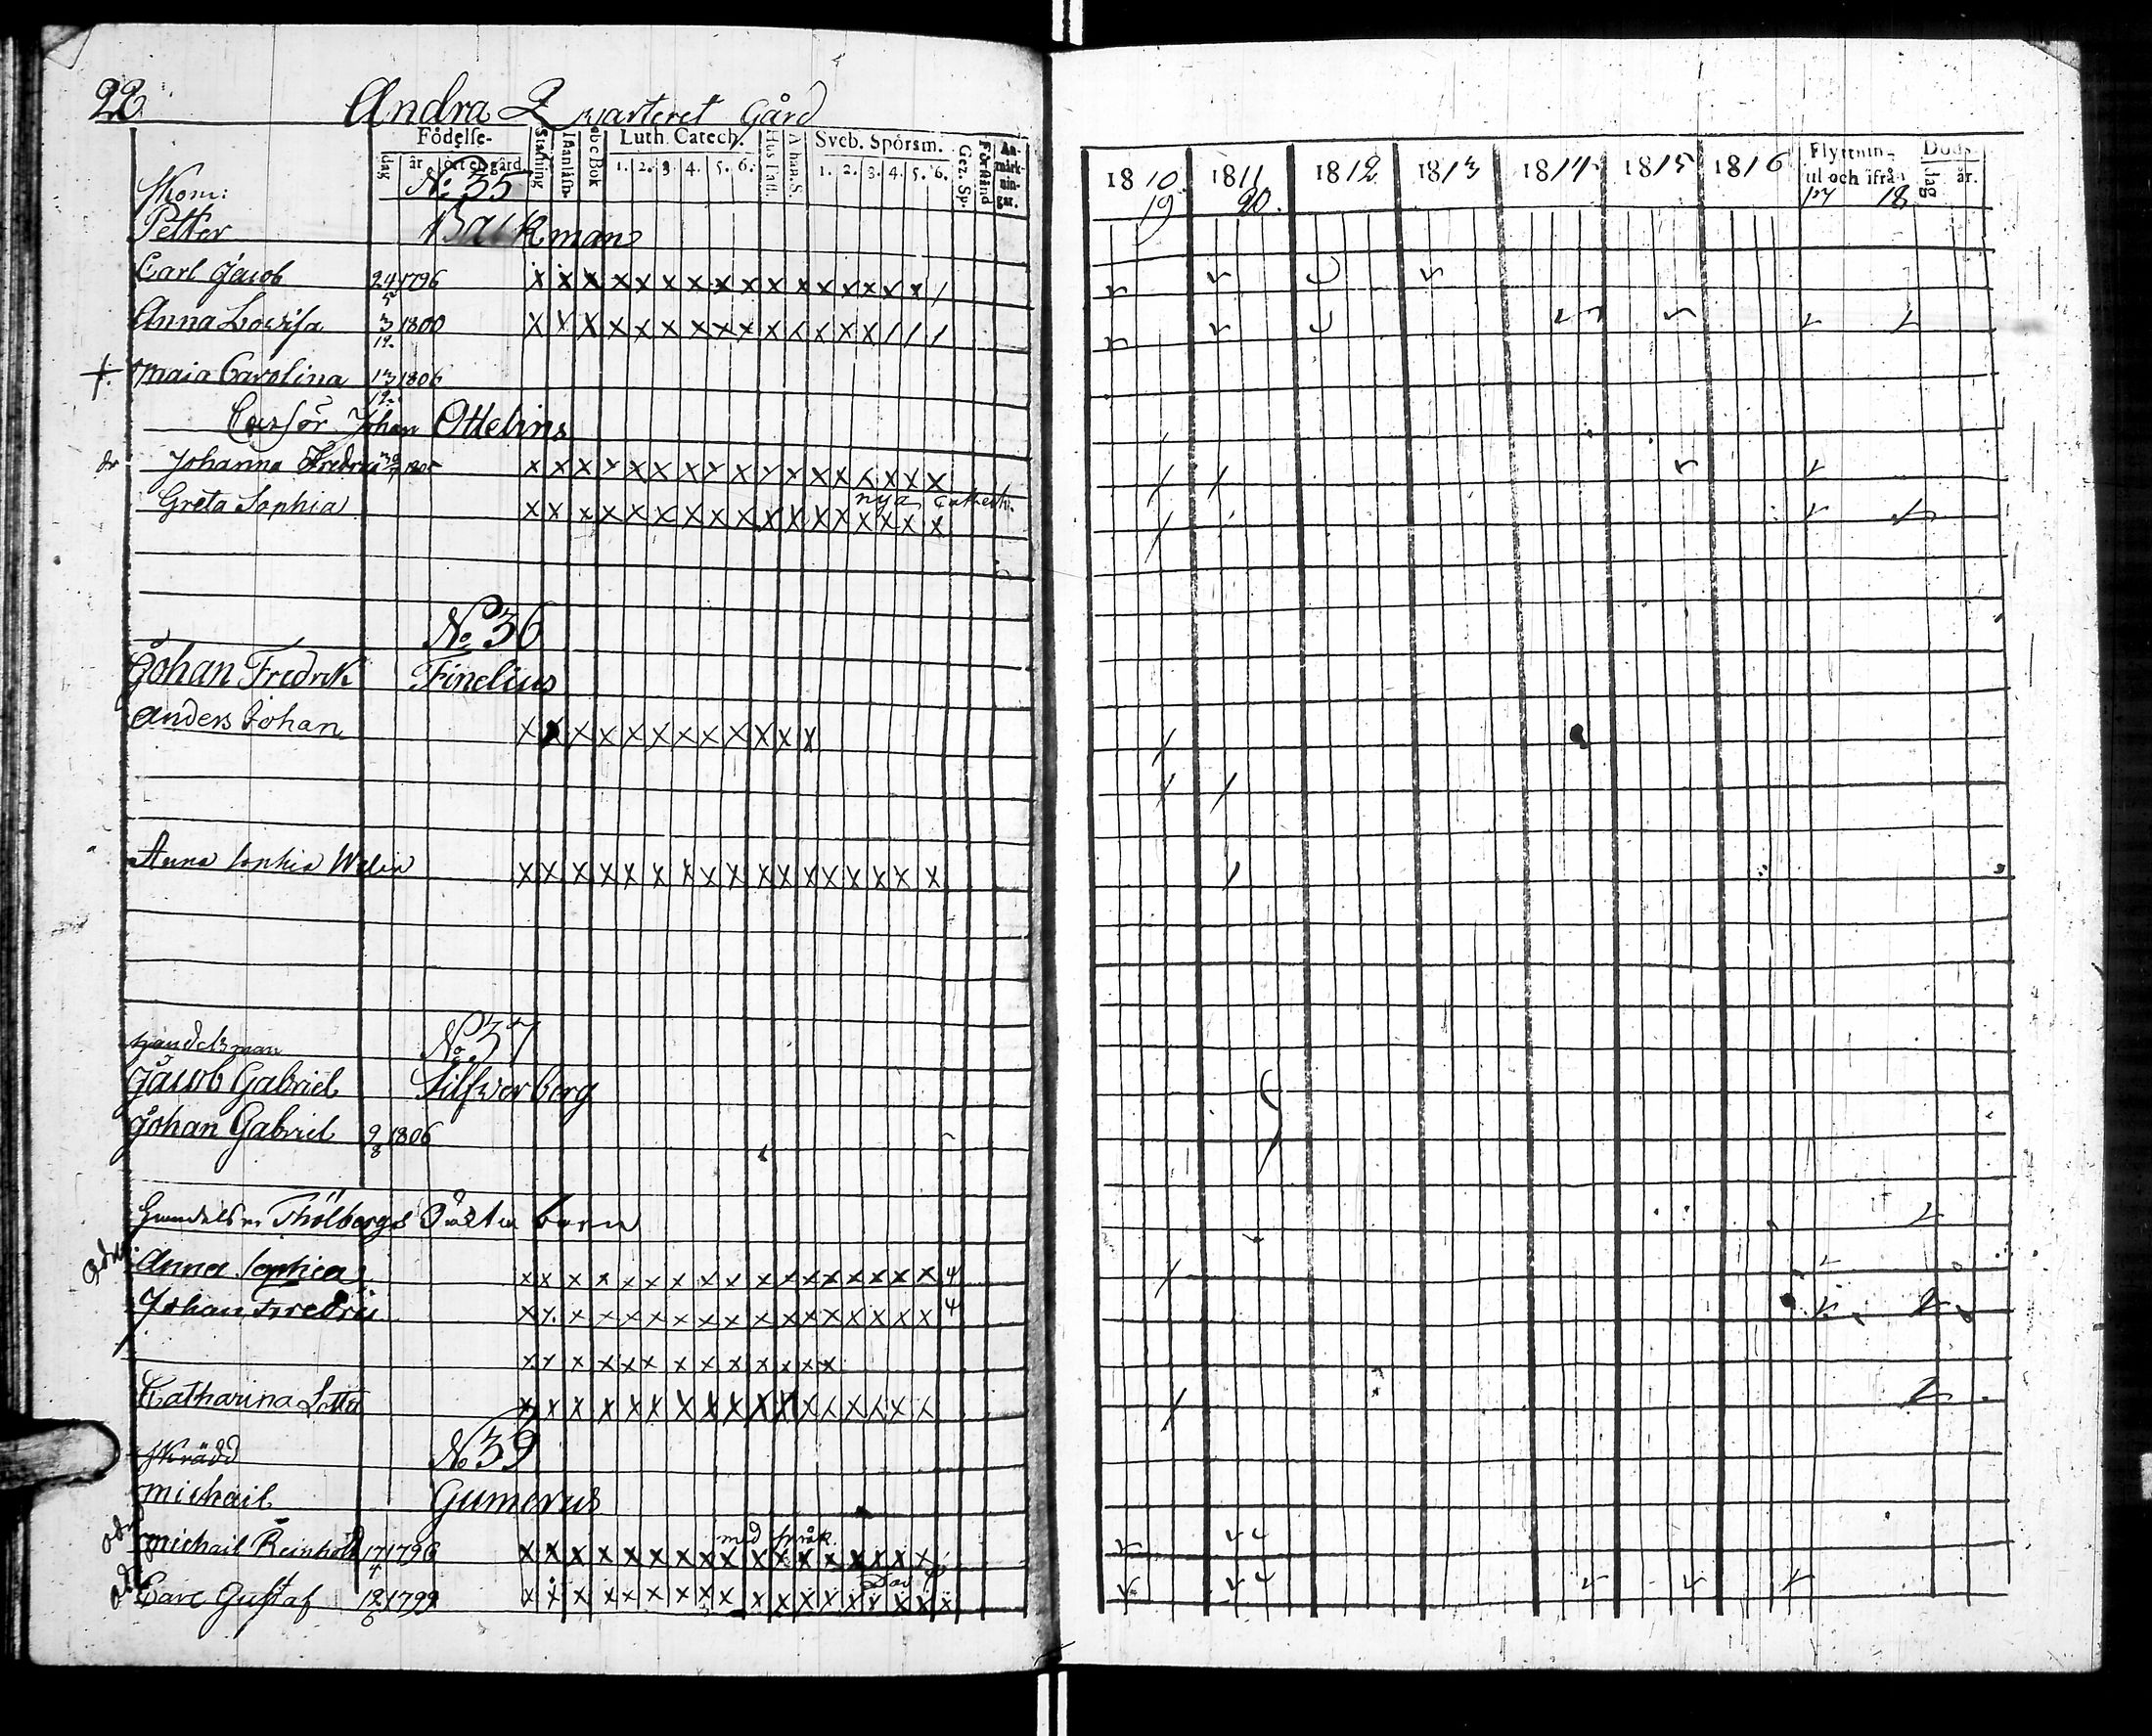 22
Andra Qvarteret Gård
Födelse-
dag år ort el. gård
Stafning
Innanläsn.
abc Bok
Luth. Catech.
1. 2. 3. 4. 5. 6.
Hustafl.
Athan. S.
Sveb. Spörsm.
1. 2. 3. 4. 5. 6.
Gez. Sp.
Förstånd
An-märk-nin-gar.
1810 1811 1812 1813 1814 1815 1816
19 20.
Flyttning
ut och ifrån
17 18
Döds
dag år.
Skom: No 35
Petter Backman
Carl Jacob 24/5 1796 x x x x x x x x x x x x x x x x /
Anna Lovisa 3/12 1800 x x x x x x x x x x x x x x / / /
+ Maia Carolina 13/12 1806
Johan Ottelins
Johanna Fredrica 1805 x x x x x x x x x x x x x x x x x
nya Cathech.
Greta Sophia x x x x x x x x x x x x x x x x x
No 36
Johan Fredrik Finelius
Anders Johan x x x x x x x x x x x x
Anna Sophia Welin x x x x x x x x x x x x x x x x x
Handelsman No 37
Jacob Gabriel Silfverberg
Johan Gabriel 9/8 1806
Thölbergs barn
Anna Sophia x x x x x x x x x x x x x x x x x 4
Johan Fredric x x x x x x x x x x x x x x x x x 4
x x x x x x x x x x x x x
Catharina Lotta x x x x x x x x x x x x x x x x x
Skrädd No 39
Michail Gumerus
med språk.
Michail Reinhold 17/4 1796 x x x x x x x x x x x x x x x x x
Carl Gustaf 12/6 1799 x x x x x x x x x x x x x x x x x x